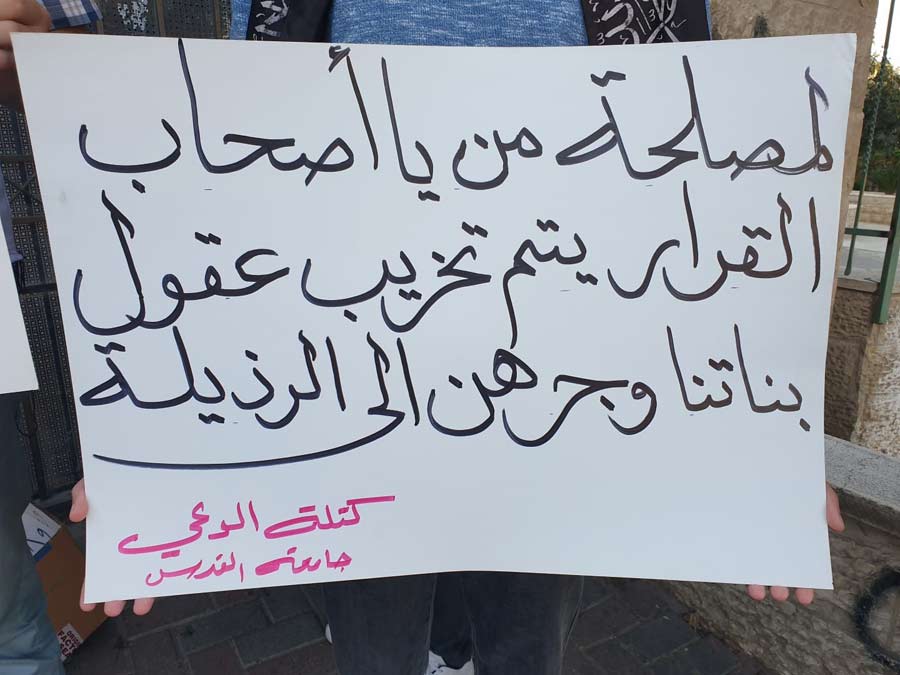 لمصلحة من يا أصحاب
القرار يتم تخريب عقول
بناتنا وجرهن الى الرذيلة
كتلة الوعي
جامعة القدس